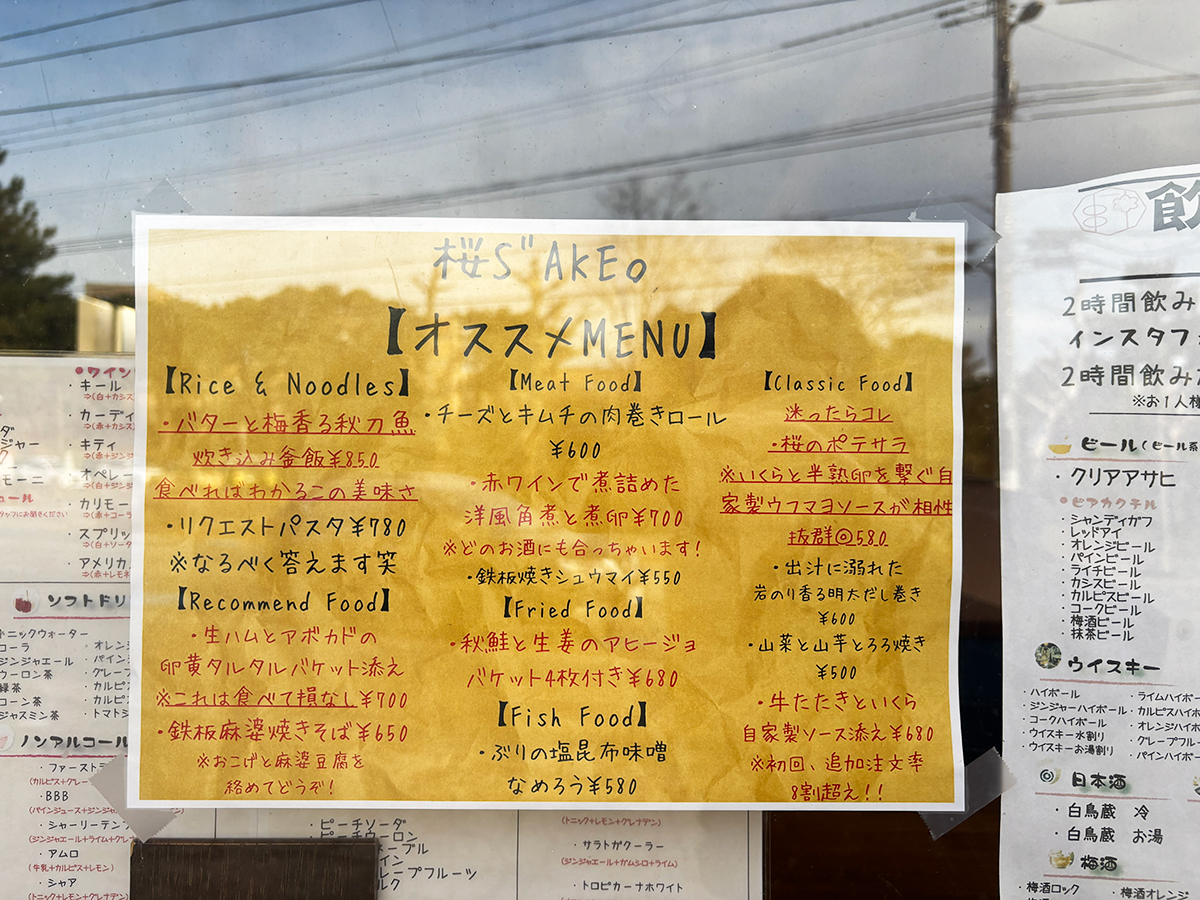 桜S"AKE。
【オススメMENU】
【Rice & Noodles】
・バターと梅香る秋刀魚
炊き込み釜飯¥850
食べればわかるこの美味さ
・リクエストパスタ¥780
※なるべく答えます笑
【Recommend Food】
・生ハムとアボカドの
卵黄タルタルバケット添え
※これは食べて損なし¥700
・鉄板麻婆焼きそば¥650
※おこげと麻婆豆腐を
絡めてどうぞ!
【Meat Food】
・チーズとキムチの肉巻きロール
¥600
・赤ワインで煮詰めた
洋風角煮と煮卵¥700
※どのお酒にも合っちゃいます!
・鉄板焼きシュウマイ¥550
【Fried Food】
・秋鮭と生姜のアヒージョ
バケット4枚付き¥680
【Fish Food】
・ぶりの塩昆布味噌
なめろう¥580
【Classic Food】
迷ったらコレ
・桜のポテサラ
※いくらと半熟卵を繋ぐ自
家製ウフマヨソースが相性
抜群◎580
・出汁に溺れた
岩のり香る明太だし巻き
¥600
・山菜と山芋とろろ焼き
¥500
・牛たたきといくら
自家製ソース添え¥680
※初回、追加注文率
8割超え!!
・ワイン
・キール
⇒(白+カシス
・カーディ
⇒(赤+カシス
・キティ
⇒(赤+ジン
・オペレー
⇒(白+ジン
・カリモー
⇒(赤+コーラ
・スプリッ
⇒(白+ソーダ
・アメリカ
⇒(赤+レモネ
ソフトドリ
トニックウォーター
コーラ
ジンジャエール
ウーロン茶
緑茶
コーン茶
ジャスミン茶
・オレン
・パイン
・グレープ
・カルピ
・カルピ
・トマトジ
ノンアルコール
・ファースト
(カルピス+グレー
・BBB
(パインジュース+ジンジャ
・シャーリーテンプ
(ジンジャエール+ライム+グレ
・アムロ
(牛乳+カルピス+レモン)
・シャア
(トニック+レモン+グレナデン)
・ピーチソーダ
・ピーチウーロン
(トニック+レモン+グレナデン)
・サラトガクーラー
(ジンジャエール+ガムシロ+ライム)
・トロピカーナホワイト
飲
2時間飲み
インスタフ
2時間飲み
※お1人様
ビール(ビール系
・クリアアサヒ
・ビアカクテル
・シャンディガフ
・レッドアイ
・オレンジビール
・パインビール
・ライチビール
・カシスビール
・カルピスビール
・コークビール
・梅酒ビール
・抹茶ビール
ウイスキー
・ハイボール
・ジンジャーハイボール
・コークハイボール
・ウイスキー水割り
・ウイスキーお湯割り
・ライムハイボー
・カルピスハイボ
・オレンジハイボ
・グレープフルー
・パインハイボー
日本酒
・白鳥蔵 冷
・白鳥蔵 お湯
梅酒
・梅酒ロック
・梅酒オレンジ